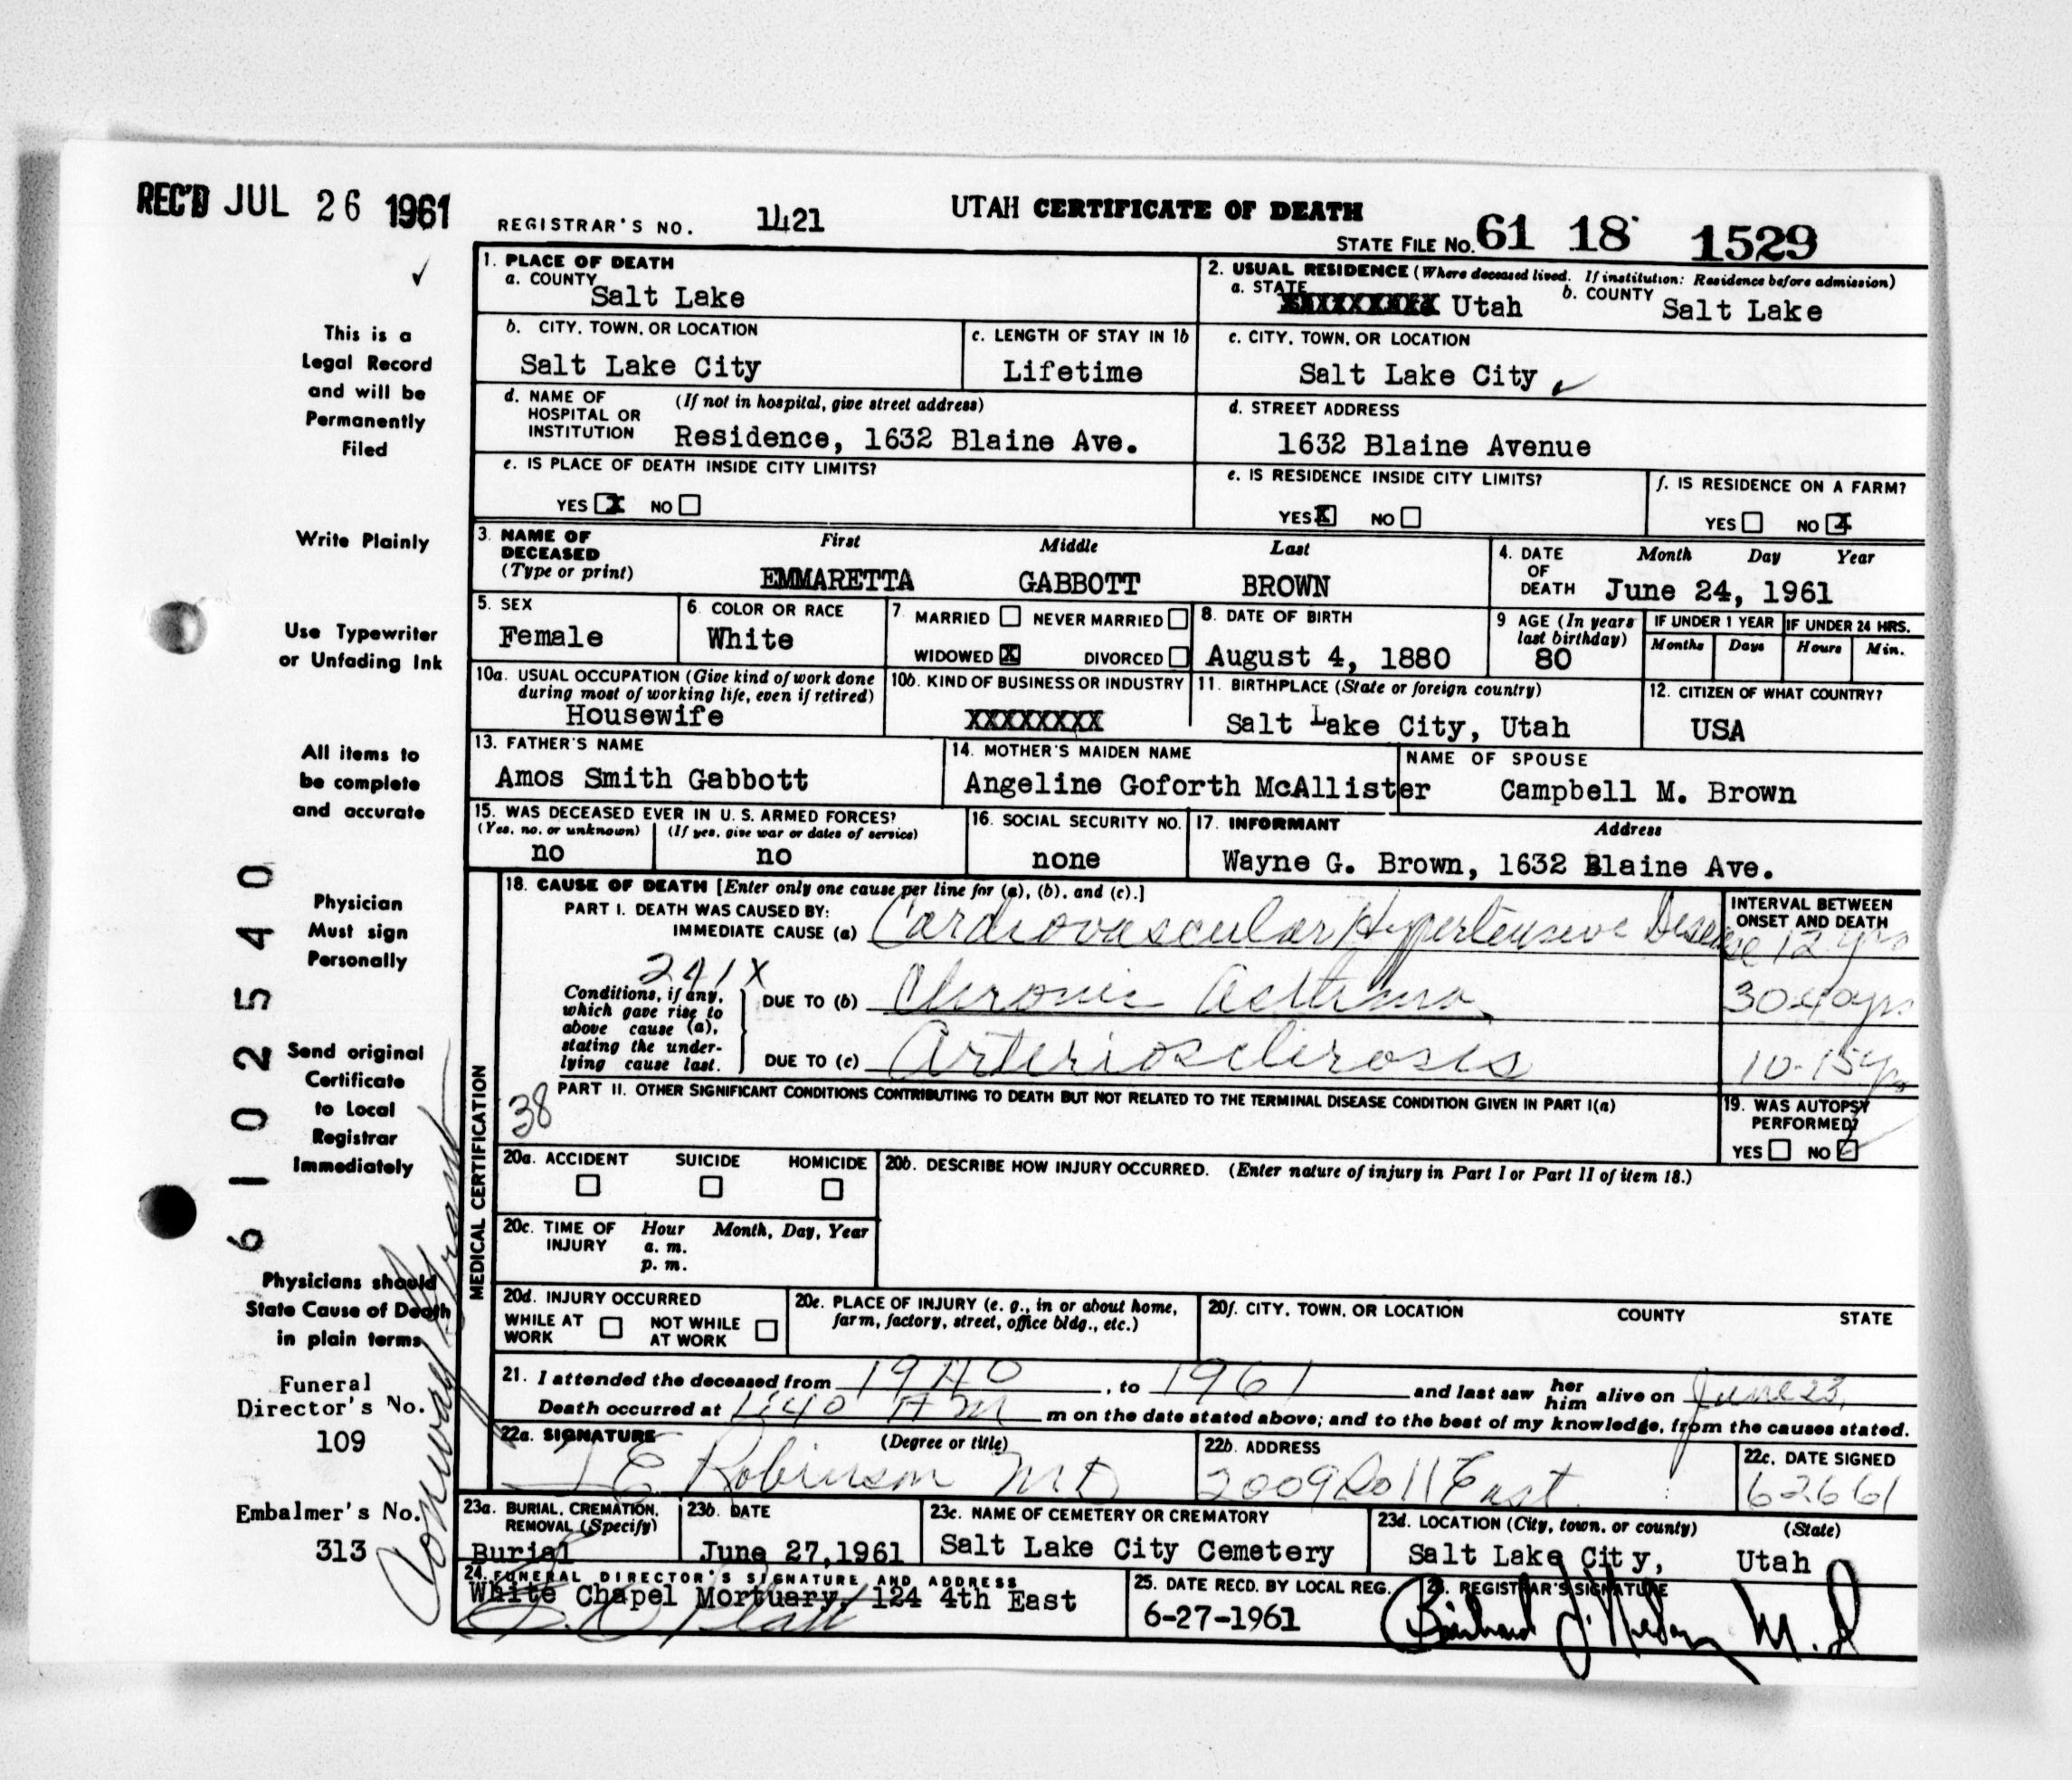 REC'D JUL 26 1961
REGISTRAR'S NO. 1421
UTAH CERTIFICATE OF DEATH
STATE FILE NO. 61 18 1529
This is a
Legal Record
and will be
Permanently
Filed
Write Plainly
Use Typewriter
or Unfading Ink
All items to
be complete
and accurate
Physician
Must sign
Personally
Send original
Certificate
to Local
Registrar
Immediately
Physicians should
State Cause of Death
in plain terms
Funeral
Director's No.
109
Embalmer's No.
313
61025540
1. PLACE OF DEATH
a. COUNTY
Salt Lake
2. USUAL RESIDENCE (Where deceased lived. If institution: Residence before admission)
a. STATE Utah b. COUNTY Salt Lake
b. CITY, TOWN, OR LOCATION
Salt Lake City
c. LENGTH OF STAY IN 1b
Lifetime
c. CITY, TOWN, OR LOCATION
Salt Lake City
d. NAME OF HOSPITAL OR INSTITUTION (If not in hospital, give street address)
Residence, 1632 Blaine Ave.
d. STREET ADDRESS
1632 Blaine Avenue
e. IS PLACE OF DEATH INSIDE CITY LIMITS?
YES X NO
e. IS RESIDENCE INSIDE CITY LIMITS?
YES X NO
f. IS RESIDENCE ON A FARM?
YES NO X
3. NAME OF DECEASED (Type or print)
First Middle Last
EMMARETTA GABBOTT BROWN
4. DATE OF DEATH
Month Day Year
June 24, 1961
5. SEX
Female
6. COLOR OR RACE
White
7. MARRIED NEVER MARRIED
WIDOWED X DIVORCED
8. DATE OF BIRTH
August 4, 1880
9 AGE (In years last birthday)
80
IF UNDER 1 YEAR IF UNDER 24 HRS.
Months Days Hours Min.
10a. USUAL OCCUPATION (Give kind of work done during most of working life, even if retired)
Housewife
10b. KIND OF BUSINESS OR INDUSTRY
XXXXXXXX
11. BIRTHPLACE (State or foreign country)
Salt Lake City, Utah
12. CITIZEN OF WHAT COUNTRY?
USA
13. FATHER'S NAME
Amos Smith Gabbott
14. MOTHER'S MAIDEN NAME
Angeline Goforth McAllister
NAME OF SPOUSE
Campbell M. Brown
15. WAS DECEASED EVER IN U. S. ARMED FORCES?
(Yes, no, or unknown) (If yes, give war or dates of service)
no no
16. SOCIAL SECURITY NO.
none
17. INFORMANT Address
Wayne G. Brown, 1632 Blaine Ave.
MEDICAL CERTIFICATION
18. CAUSE OF DEATH [Enter only one cause per line for (a), (b), and (c).]
PART I. DEATH WAS CAUSED BY:
IMMEDIATE CAUSE (a) Cardiovascular Hypertensive Disease 12 yrs
INTERVAL BETWEEN ONSET AND DEATH
241X
Conditions, if any, which gave rise to above cause (a), stating the underlying cause last.
DUE TO (b) Chronic Asthma
DUE TO (c) Arteriosclerosis 10-15 yrs
38
PART II. OTHER SIGNIFICANT CONDITIONS CONTRIBUTING TO DEATH BUT NOT RELATED TO THE TERMINAL DISEASE CONDITION GIVEN IN PART I(a)
19. WAS AUTOPSY PERFORMED?
YES NO
20a. ACCIDENT SUICIDE HOMICIDE
20b. DESCRIBE HOW INJURY OCCURRED. (Enter nature of injury in Part I or Part II of item 18.)
20c. TIME OF INJURY Hour Month, Day, Year
a. m.
p. m.
20d. INJURY OCCURRED
WHILE AT WORK NOT WHILE AT WORK
20e. PLACE OF INJURY (e. g., in or about home, farm, factory, street, office bldg., etc.)
20f. CITY, TOWN, OR LOCATION COUNTY STATE
21. I attended the deceased from 1940, to 1961 and last saw her him alive on June 23,
Death occurred at AM m on the date stated above; and to the best of my knowledge, from the causes stated.
22a. SIGNATURE (Degree or title)
E Robinson MD
22b. ADDRESS
2009 So 11 East
22c. DATE SIGNED
62661
23a. BURIAL, CREMATION, REMOVAL (Specify)
Burial
23b. DATE
June 27,1961
23c. NAME OF CEMETERY OR CREMATORY
Salt Lake City Cemetery
23d. LOCATION (City, town, or county) (State)
Salt Lake City, Utah
24. FUNERAL DIRECTOR'S SIGNATURE AND ADDRESS
White Chapel Mortuary, 124 4th East
25. DATE RECD. BY LOCAL REG.
6-27-1961
26. REGISTRAR'S SIGNATURE
M.D